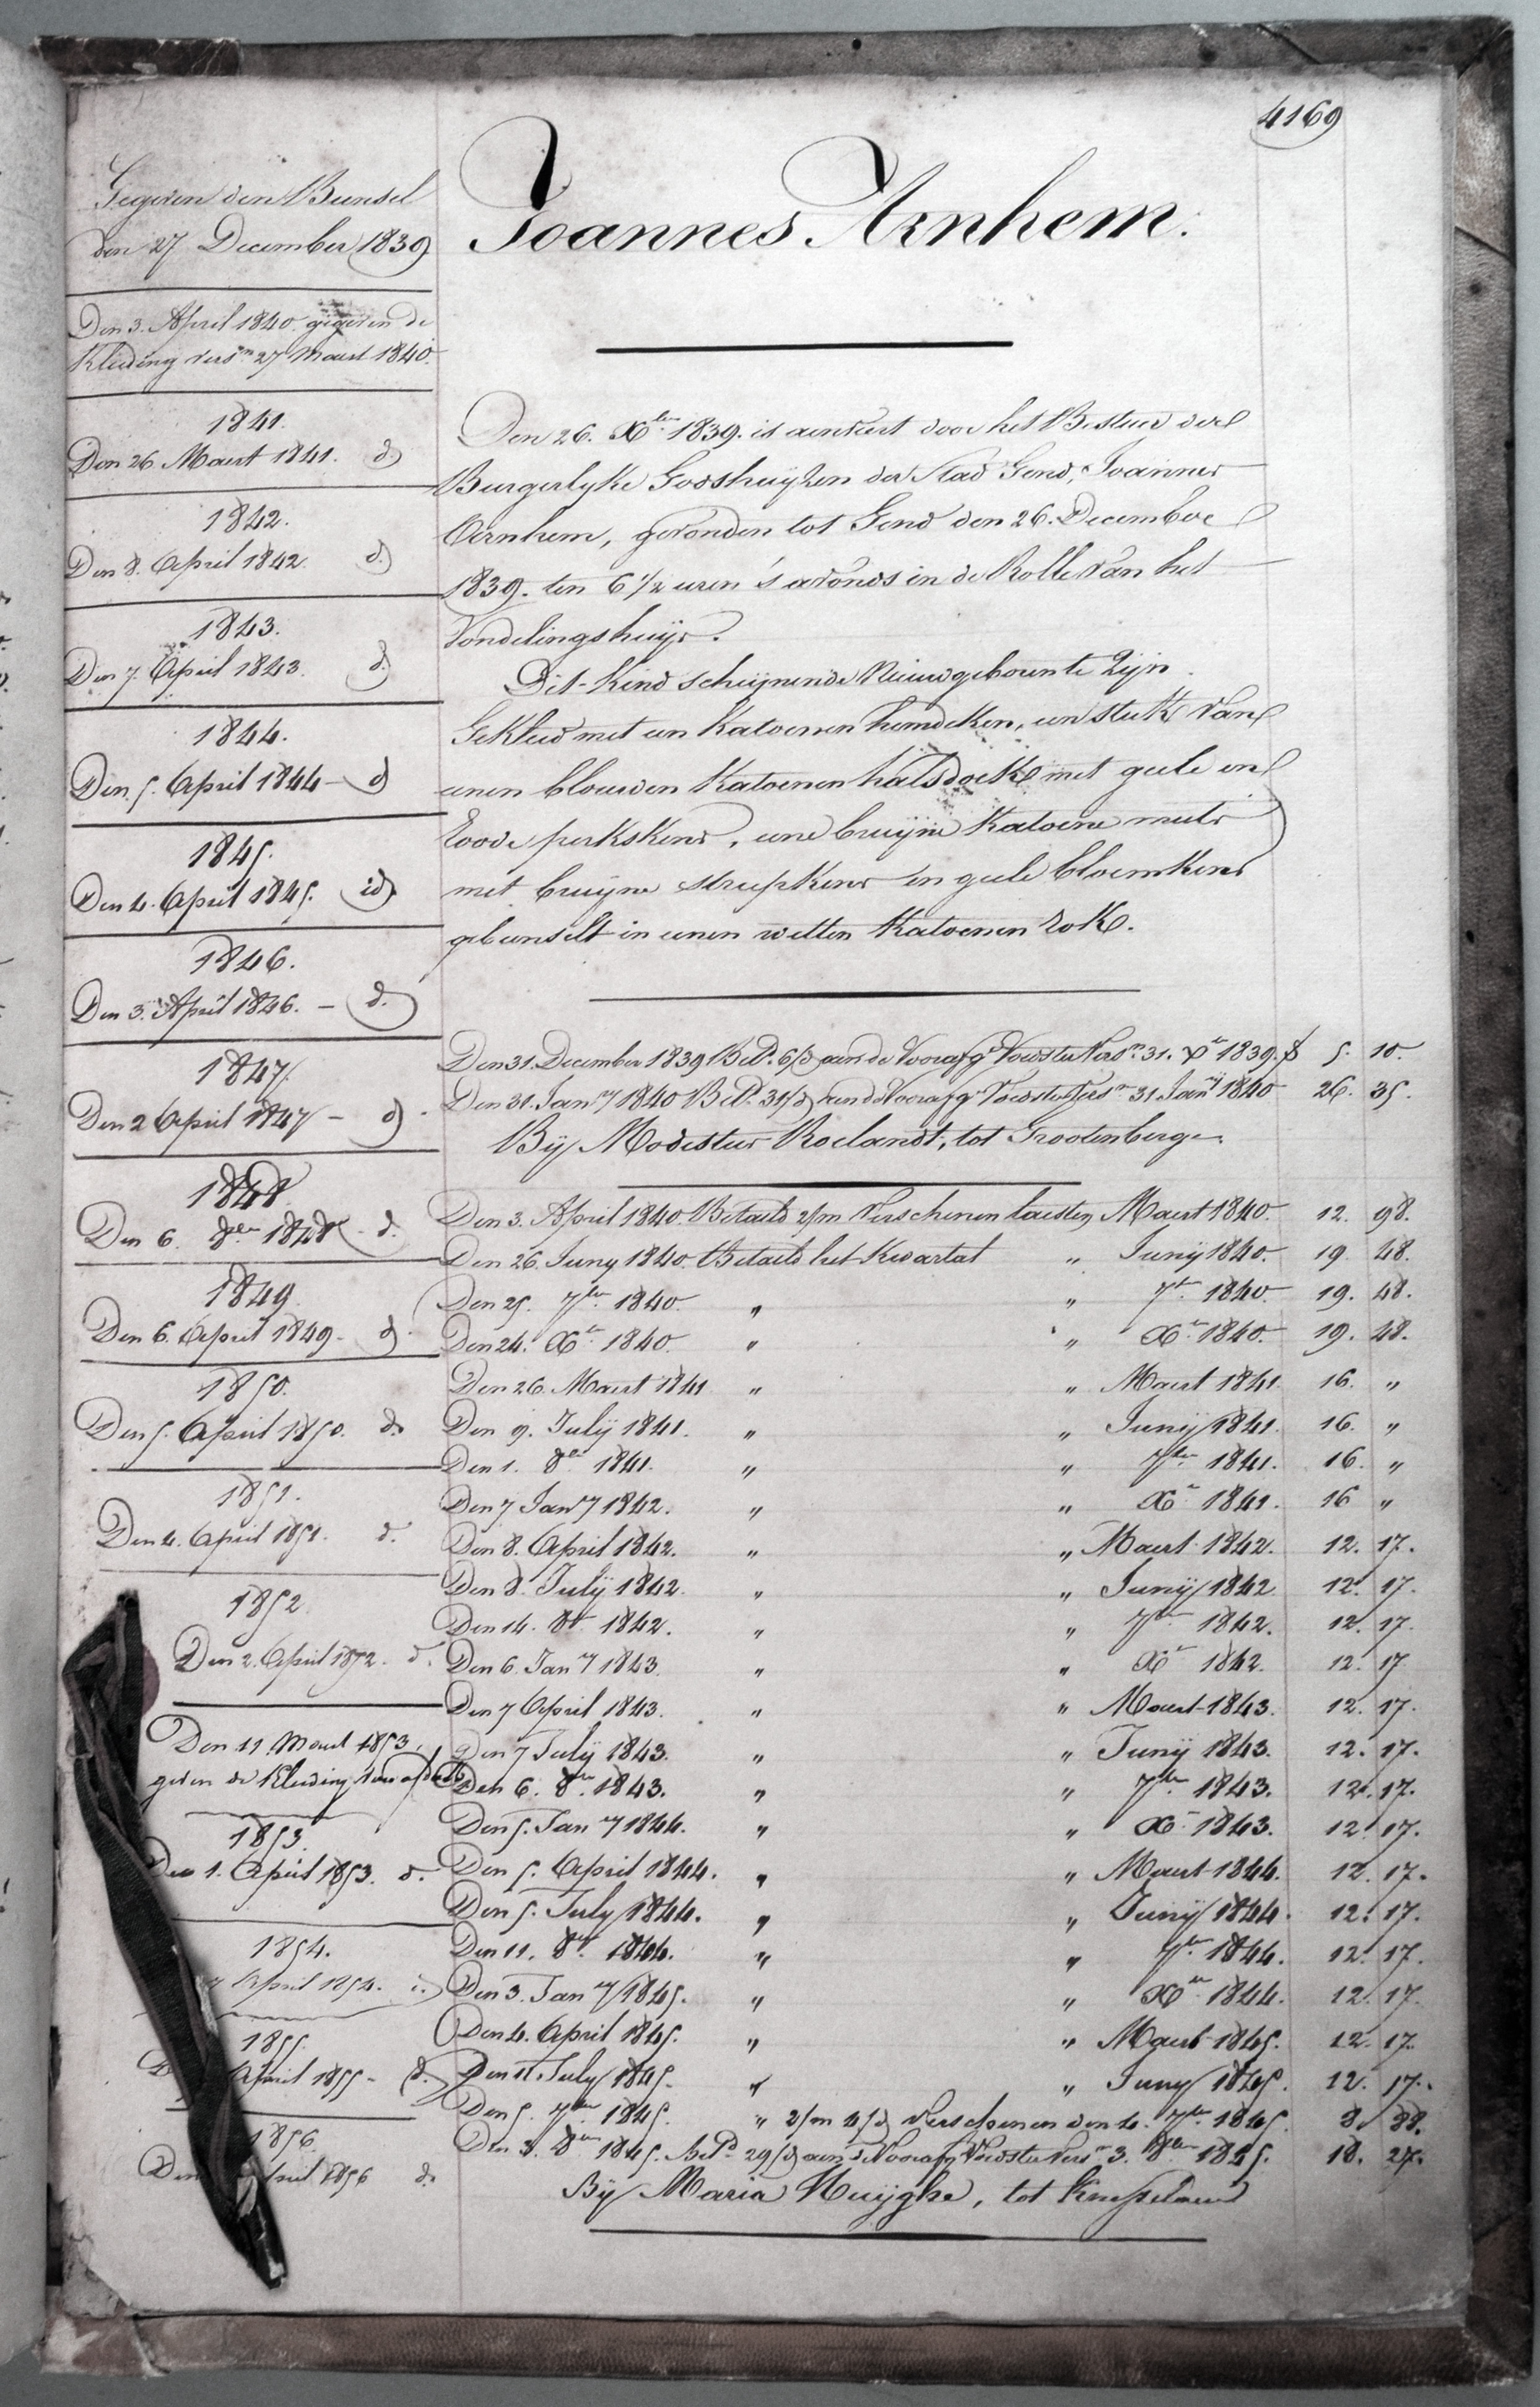 4169
Joannes Arnhem.
Gegeven den Bunsel
den 27 December 1839
Den 3. April 1840 gegeven de
Kleeding versn 27 Maert 1840.
1841.
Den 26 Maert 1841. d
1842.
Den 8. April 1842 d.
1843.
Den 7. April 1843. d.
1844.
Den 5. April 1844 - d
1845.
Den 4. April 1845. id
1846.
Den 3. April 1846. - d.
1847.
Den 2 April 1847 - d
1848
Den 6. 8ber 1848 - d.
1849
Den 6. April 1849 - d
1850.
Den 5. April 1850. d.
1851.
Den 4. April 1851. d.
1852
Den 2. April 1852. d.
Den 11 Maert 1853,
geven de Kleeding
1853.
Den 1. April 1853. d.
1854.
April 1854.
1855.
April 1855 - d.
1856
Den April 1856 d.
Den 26. Xber 1839. is aenveert door het Bestier der
Burgerlyke Godshuyzen der Stad Gend, Joannes
Arnhem, gevonden tot Gend den 26. December
1839. ten 6 1/2 uren 's avonds in de Rolle van het
Vondelingshuys.
Dit Kind scheynende Nieuwgeboren te Zijn
Gekleed met een Katoenen hemdeken, een stuk van
eenen blauwen Katoenen halsdoek met geele en
roode perkskens, eene bruyne Katoene muts
met bruyne streepkens en geele bloemkens
gebunselt in eenen witten Katoenen rok.
Den 31. December 1839 Betd. 6/d aen de Voorafge Voedster versn. 31. Xbr 1839. f 5. 10.
Den 31. Jany 1840 Betd. 31/d aen de Voorafge Voedster versn 31 Jany 1840 26. 35.
By Modestus Roelandt, tot Grootenberge.
Den 3. April 1840. Betaeld 2/m Verschenen laesten Maert 1840. 12. 98.
Den 26. Juny 1840. Betaeld het Kwartal " Junij 1840. 19. 48.
Den 25. 7ber 1840. " " 7br 1840. 19. 48.
Den 24. Xbr 1840. " " Xbr 1840. 19. 48.
Den 26. Maert 1841 " " Maert 1841. 16. "
Den 9. Julij 1841. " " Junij 1841. 16. "
Den 1. 8br 1841. " " 7ber 1841. 16. "
Den 7 Jany 1842. " " Xbr 1841. 16 "
Den 8. April 1842. " " Maert 1842. 12. 17.
Den 8. Julij 1842. " " Junij 1842 12. 17.
Den 14. 8br 1842. " " 7ber 1842. 12. 17.
Den 6. Jany 1843. " " Xbr 1842. 12. 17
Den 7 April 1843. " " Maert 1843. 12. 17.
Den 7 Julij 1843. " " Junij 1843. 12. 17.
Den 6. 8br 1843. " " 7ber 1843. 12. 17.
Den 5. Jany 1844. " " Xbr 1843. 12. 17.
Den 5. April 1844. " " Maert 1844. 12. 17.
Den 5. July 1844. " " Junij 1844. 12. 17.
Den 11. 8br 1844. " " 7ber 1844. 12. 17.
Den 3. Jany 1845. " " Xber 1844. 12. 17.
Den 4. April 1845. " " Maert 1845. 12. 17.
Den 11 July 1845. " " Juny 1845. 12. 17.
Den 5. 7ber 1845. " 2/m 4/d Verschenen den 4. 7ber 1845. 8. 88.
Den 3. 8ber 1845. Betd. 29/d aen de Voorafge Voedster versn 3. 8ber 1845. 18. 27.
By Maria Huyghe, tot